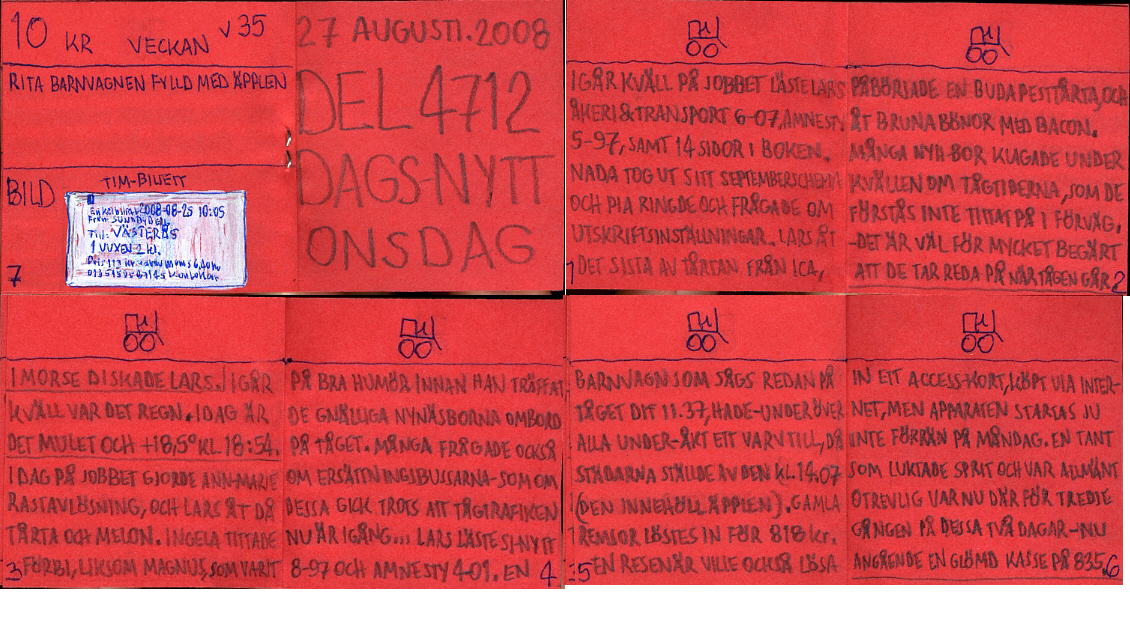 10 KR VECKAN V 35
RITA BARNVAGNEN FYLLD MED ÄPPLEN
BILD
TIM-BILJETT
Enkelbiljett 2008-08-25 10:05
Från: SUNDBYBERG
Till: VÄSTERÅS
1 VUXEN 2 kl.
7
27 AUGUSTI. 2008
DEL 4712
DAGS-NYTT
ONSDAG
I GÅR KVÄLL PÅ JOBBET LÄSTE LARS
ÅKERI & TRANSPORT 6-07, AMNESTY
5-97, SAMT 14 SIDOR I BOKEN.
NADA TOG UT SITT SEPTEMBERSCHEMA
OCH PIA RINGDE OCH FRÅGADE OM
UTSKRIFTSINSTÄLLNINGAR. LARS ÅT
DET SISTA AV TÅRTAN FRÅN ICA,
1
PÅBÖRJADE EN BUDAPESTTÅRTA, OCH
ÅT BRUNA BÖNOR MED BACON.
MÅNGA NYH-BOR KLAGADE UNDER
KVÄLLEN OM TÅGTIDERNA, SOM DE
FÖRSTÅS INTE TITTAT PÅ I FÖRVÄG.
-DET ÄR VÄL FÖR MYCKET BEGÄRT
ATT DE TAR REDA PÅ NÄR TÅGEN GÅR
2
I MORSE DISKADE LARS. I GÅR
KVÄLL VAR DET REGN. IDAG ÄR
DET MULET OCH +18,5° KL. 18:54.
I DAG PÅ JOBBET GJORDE ANN-MARIE
RASTAVLÖSNING, OCH LARS ÅT DÅ
TÅRTA OCH MELON. INGELA TITTADE
FÖRBI, LIKSOM MAGNUS, SOM VARIT
3
PÅ BRA HUMÖR INNAN HAN TRÄFFAT
DE GNÄLLIGA NYNÄSBORNA OMBORD
PÅ TÅGET. MÅNGA FRÅGADE OCKSÅ
OM ERSÄTTNINGSBUSSARNA - SOM OM
DESSA GICK TROTS ATT TÅGTRAFIKEN
NU ÄR IGÅNG... LARS LÄSTE SI-NYTT
8-97 OCH AMNESTY 4-01. EN
4
BARNVAGN SOM SÅGS REDAN PÅ
TÅGET DIT 11.37, HADE-UNDER ÖVER
ALLA UNDER-ÅKT ETT VARV TILL, DÅ
STÄDARNA STÄLLDE AV DEN KL. 14.07
(DEN INNEHÖLL ÄPPLEN). GAMLA
REMSOR LÖSTES IN FÖR 818 kr.
EN RESENÄR VILLE OCKSÅ LÖSA
5
IN ETT ACCESS-KORT, KÖPT VIA INTER-
NET, MEN APPARATEN STARTAS JU
INTE FÖRRÄN PÅ MÅNDAG. EN TANT
SOM LUKTADE SPRIT OCH VAR ALLMÄNT
OTREVLIG VAR NU DÄR FÖR TREDJE
GÅNGEN PÅ DESSA TVÅ DAGAR-NU
ANGÅENDE EN GLÖMD KASSE PÅ 835.
6